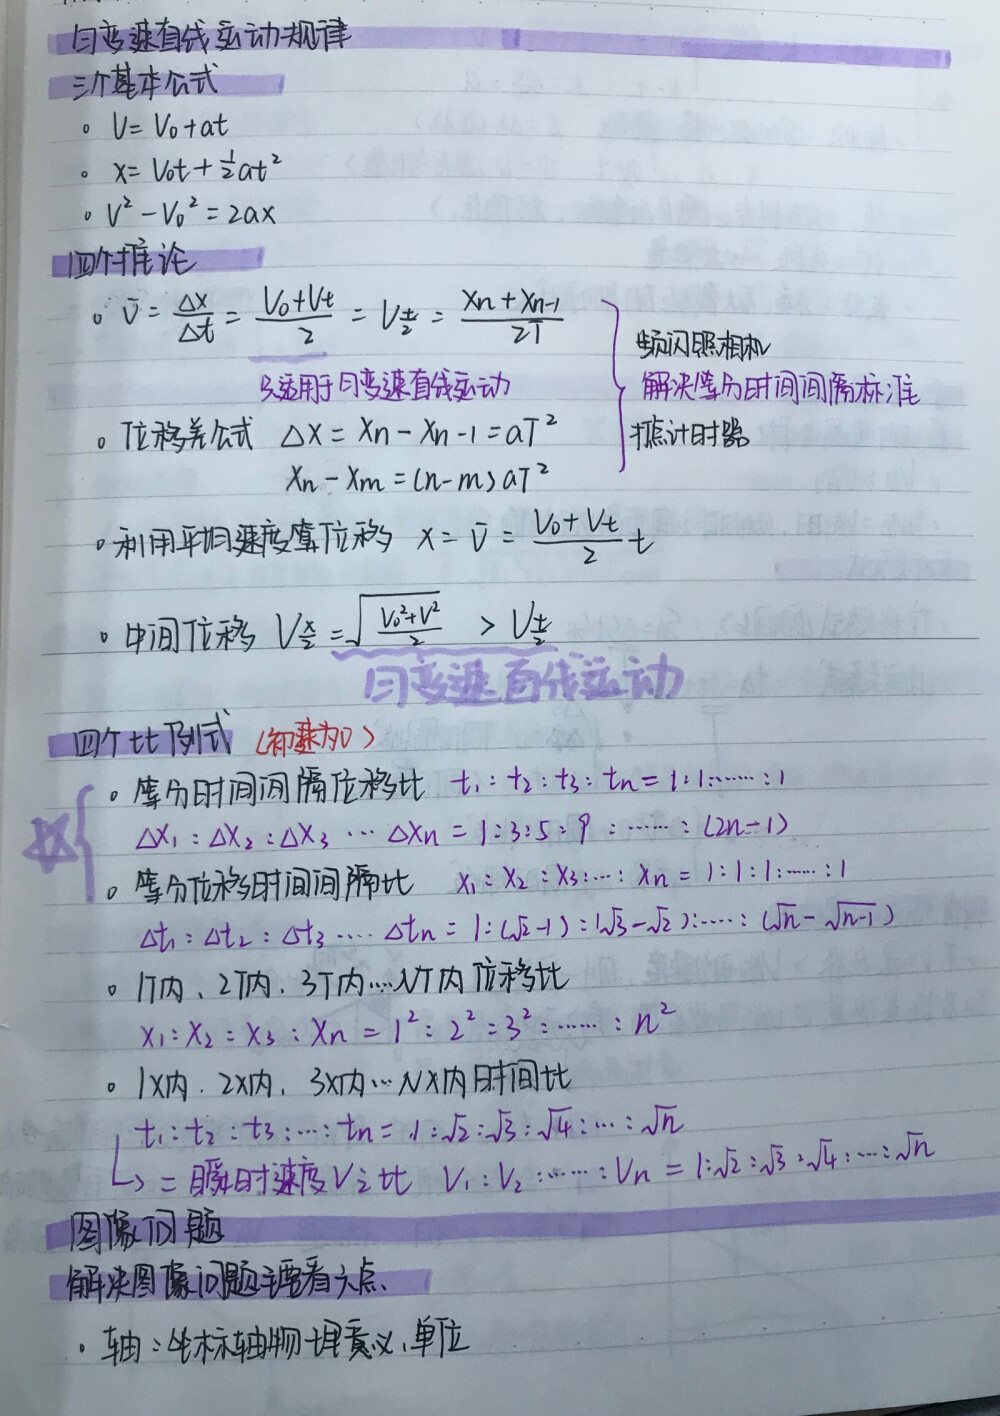 匀变速直线运动规律
三个基本公式
。V=V₀+at
。x=V₀t+½at²
。V²-V₀²=2ax
四个推论
。v̄=Δx/Δt=(V₀+Vt)/2=V_{t/2}=(Xn+Xn-1)/2T
只适用于匀变速直线运动
频闪照相机
解决等分时间间隔标准
打点计时器
。位移差公式 ΔX=Xn-Xn-1=aT²
Xn-Xm=(n-m)aT²
。利用平均速度算位移 x=v̄=(V₀+Vt)/2 t
。中间位移 V_{x/2}=√((V₀²+V²)/2) > V_{t/2}
匀变速直线运动
四个比例式(初速为0)
。等分时间间隔位移比 t₁:t₂:t₃:tn=1:1:……:1
Δx₁:Δx₂:Δx₃…Δxn=1:3:5:9:……:(2n-1)
。等分位移时间间隔比 x₁:x₂:x₃:…:xn=1:1:1:……:1
Δt₁:Δt₂:Δt₃….Δtn=1:(√2-1):(√3-√2):….:(√n-√n-1)
。1T内、2T内、3T内…NT内位移比
x₁:x₂:x₃:xn=1²:2²:3²:……:n²
。1X内、2X内、3X内…NX内时间比
t₁:t₂:t₃:…:tn=1:√2:√3:√4:…:√n
↳=瞬时速度V之比 V₁:V₂:……:Vn=1:√2:√3:√4:…:√n
图像问题
解决图像问题主要看六点、
·轴:坐标轴物理意义、单位